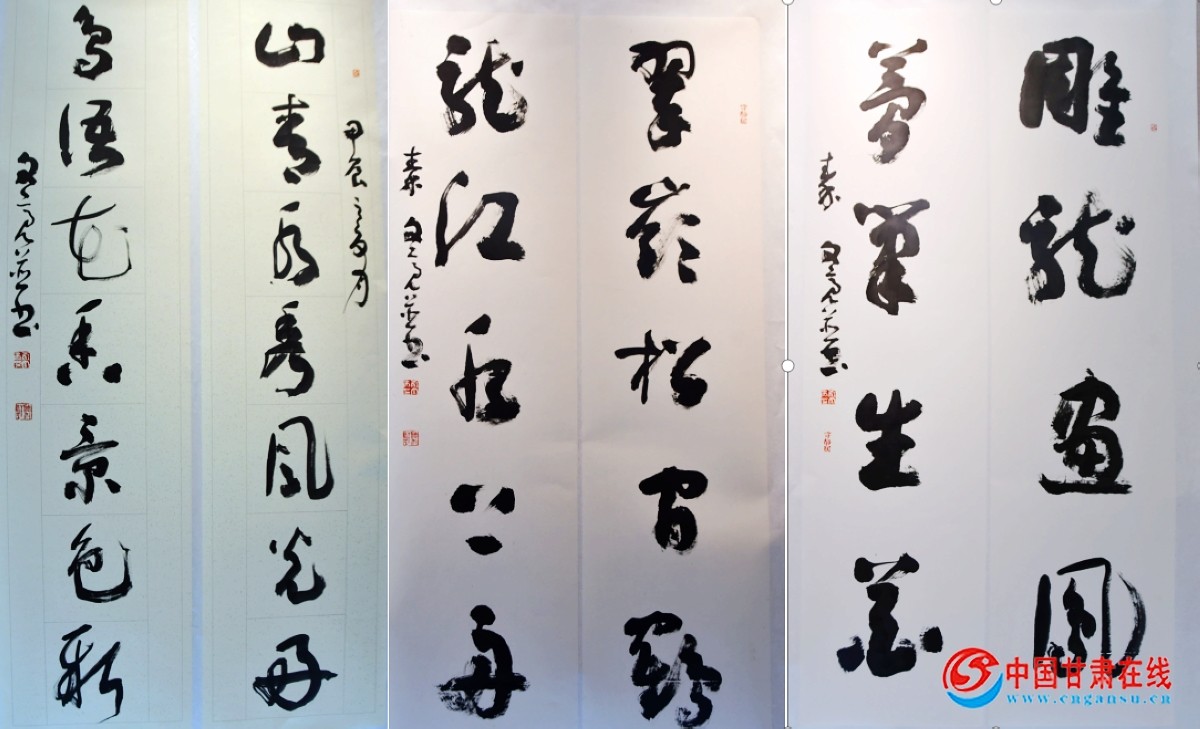 山青水秀风光好
甲辰之夏月
鸟语花香景色新
翠岭松间鹤
龙江水上舟
雕龙画凤
梦笔生花
中国甘肃在线
www.cngansu.cn